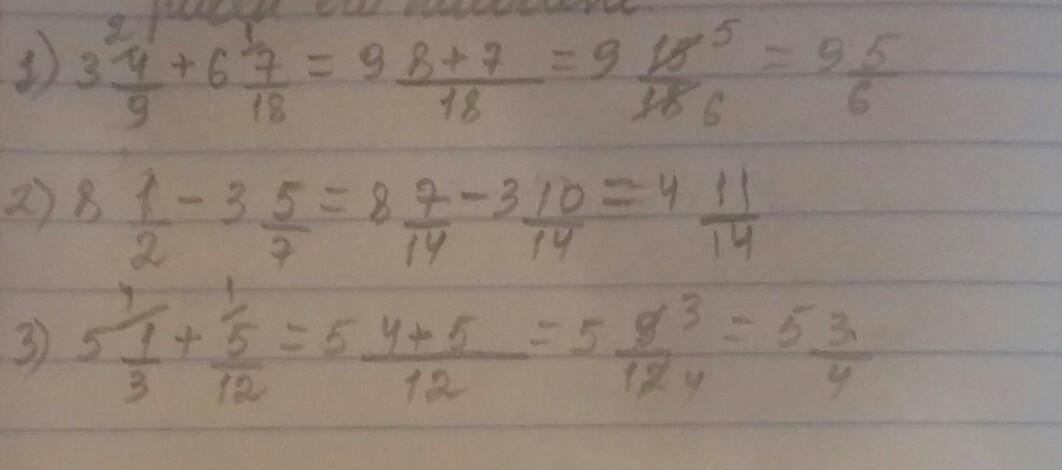 1) 3 4/9 + 6 7/18 = 9 8+7/18 = 9 15/18 = 9 5/6
2) 8 1/2 - 3 5/7 = 8 7/14 - 3 10/14 = 4 11/14
3) 5 1/3 + 5/12 = 5 4+5/12 = 5 9/12 = 5 3/4